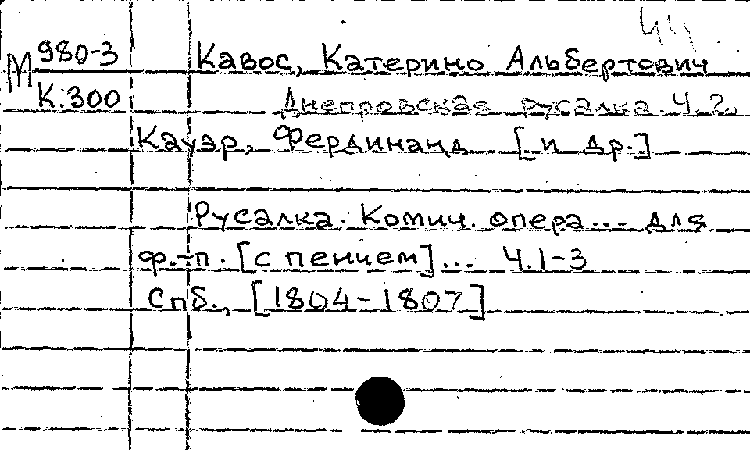 44
М 980-3 Кавос, Катерино Альбертович
К.300 Днепровская русалка. Ч.2.
Кауэр, Фердинанд [и др.]
Русалка. Комич. опера... для
ф.-п. [с пением]... Ч.1-3
Спб., [1804-1807]